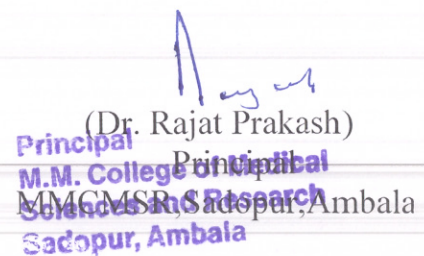 (Dr. Rajat Prakash)
Principal
MMCMSR, Sadopur, Ambala
Principal
M.M. College of Medical
Sciences and Research
Sadopur, Ambala